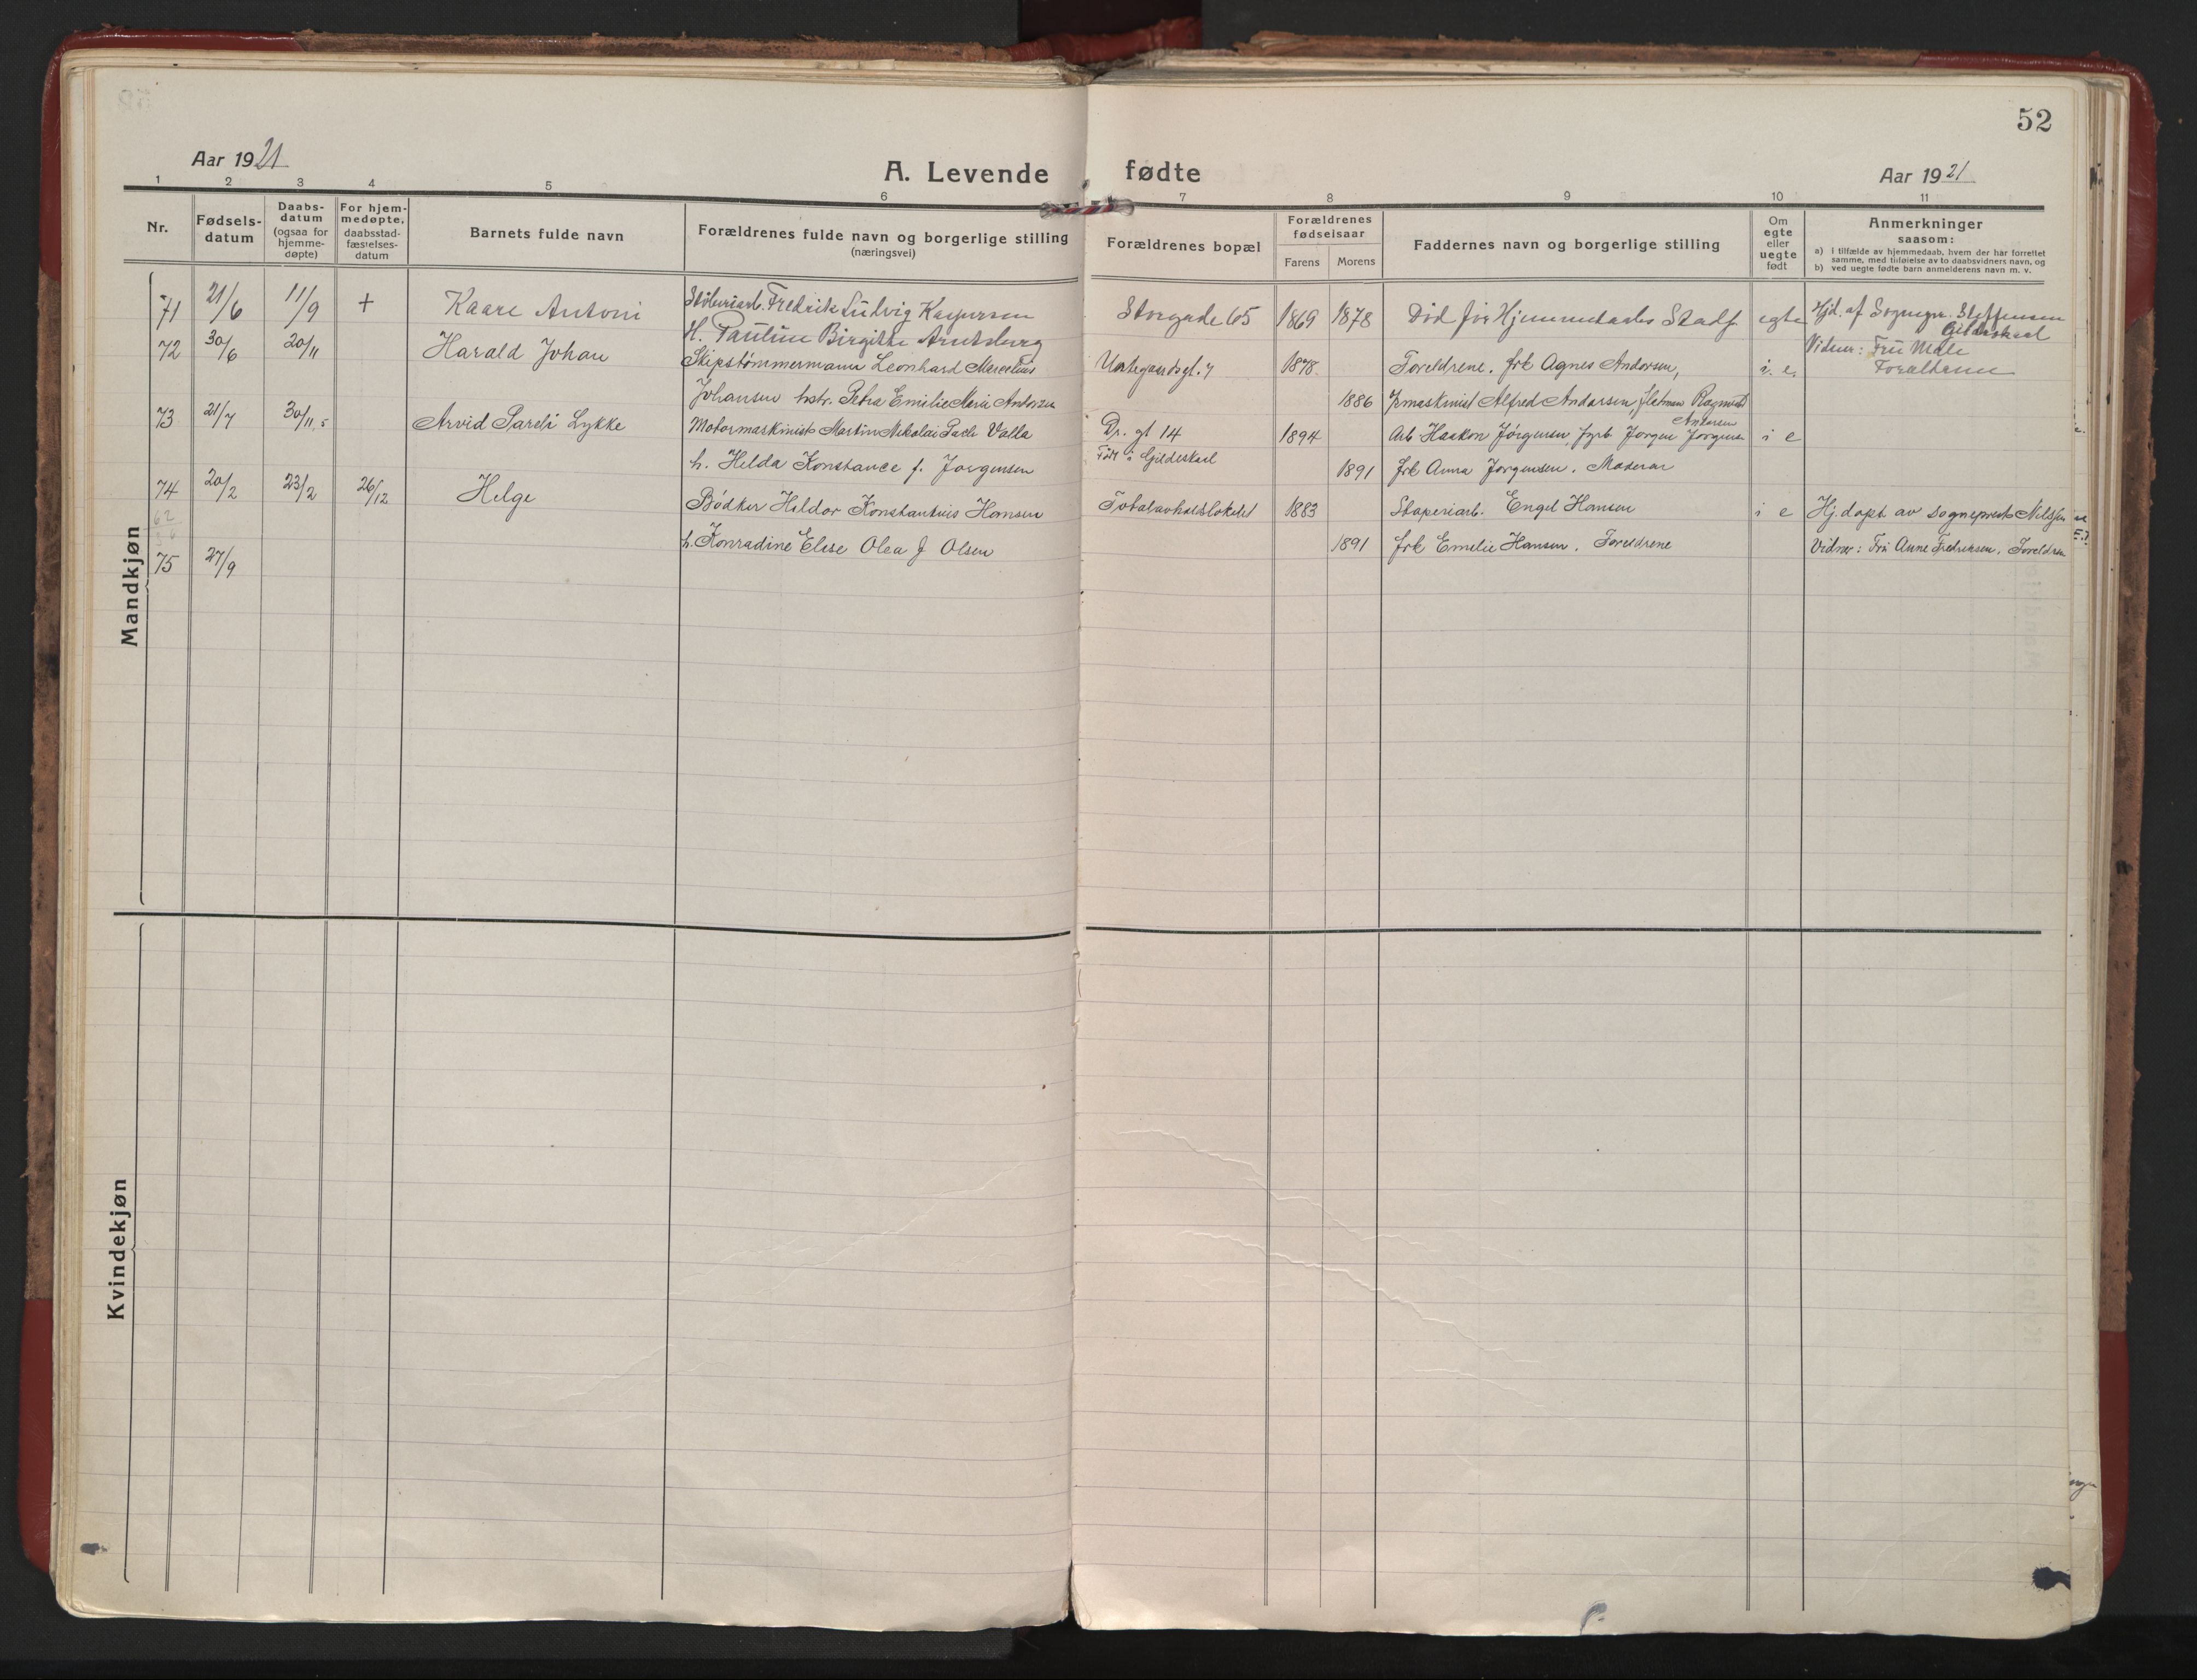 52
Aar 1921
A. Levende fødte
Aar 1921
1 2 3 4 5 6 7 8 9 10 11
Nr.
Fødsels-
datum
Daabs-
datum
(ogsaa for
hjemme-
døpte)
For hjem-
medøpte,
daabsstad-
fæstelses-
datum
Barnets fulde navn
Forældrenes fulde navn og borgerlige stilling
(næringsvei)
Forældrenes bopæl
Forældrenes
fødselsaar
Farens Morens
Faddernes navn og borgerlige stilling
Om
egte
eller
uegte
født
Anmerkninger
saasom:
a) I tilfælde av hjemmedaab, hvem der har forrettet
samme, med tilføielse av to daabsvidners navn, og
b) ved uegte fødte barn anmelderens navn m. v.
Mandkjøn
71 21/6 11/9 + Kaare Antoni Fredrik Ludvig Storgade 65 1869 1878 Død før Hjemmedaabs Stadf. egte Hjd. af Sognepr. Steffensen
Gildeskaal
H. Pauline Birgithe Arntsberg Vidner: Fru
Forældrene
72 30/6 20/11 Harald Johan Skipstømmermann Leonhard Marcelius 1878 Foreldrene. frk Agnes Andersen, i. e.
Johansen hstr. Petra Emilie Marie Andersen 1886 Alfred Andersen, Ragnvald
Andersen
73 21/7 30/11 Arvid Sareli Lykke Motormaskinist Martin Nikolai Valla Dr. gt 14 1894 Arb Haakon Jørgensen, Jørgen Jørgensen i e
Født i Gildeskaal
h. Helda Konstance f. Jørgensen 1891 frk Anna Jørgensen. Moderen
74 20/2 23/2 26/12 Helge Bødker Hildor Konstantius Hansen Totalavholdslokalet 1883 Engel Hansen i e Hj.døpt av sogneprest Nilssen
62
h. Konradine Elise Olea f Olsen 1891 frk Emelie Hansen. Foreldrene Vidner: Fru Anne Fredriksen. Foreldrene
75 27/9
Kvindekjøn